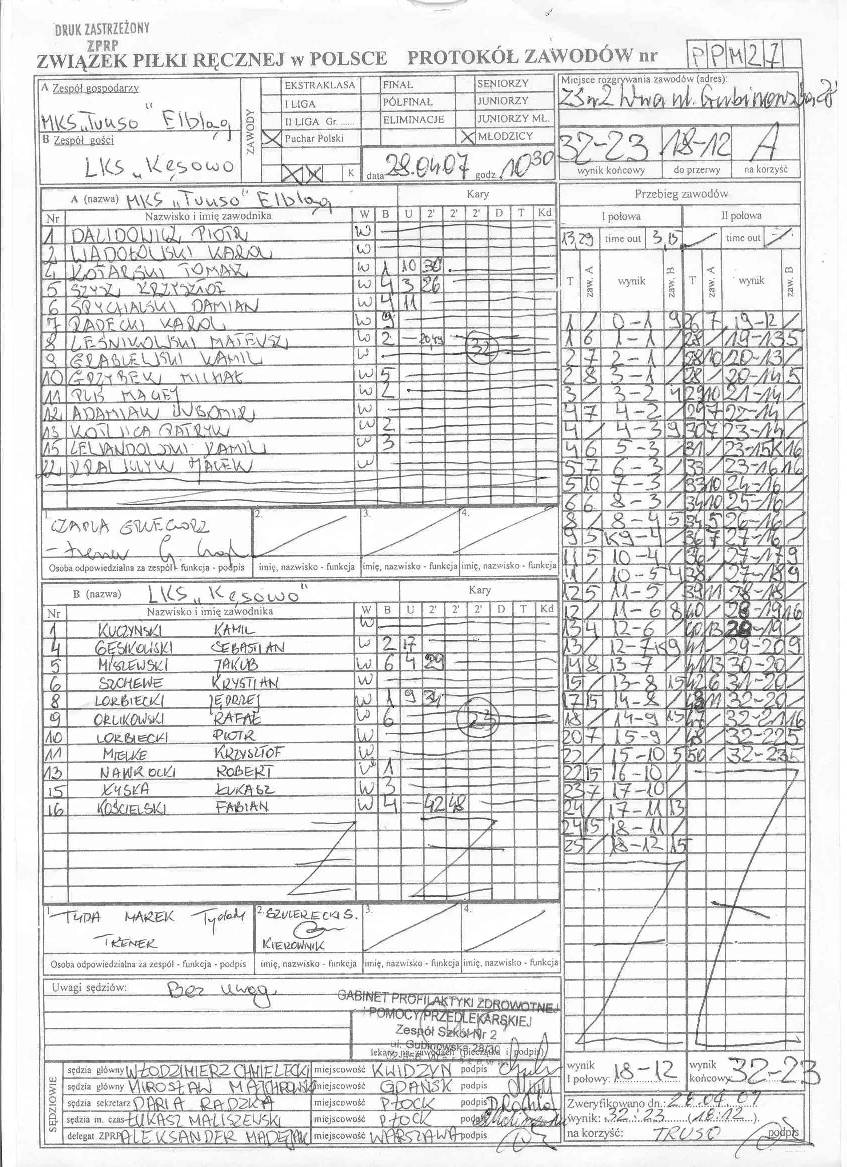 DRUK ZASTRZEŻONY
ZPRP
ZWIĄZEK PIŁKI RĘCZNEJ w POLSCE PROTOKÓŁ ZAWODÓW nr PPM27
A Zespół gospodarzy
MKS „Truso” Elbląg
B Zespół gości
LKS „Kęsowo
ZAWODY
EKSTRAKLASA FINAŁ SENIORZY
I LIGA PÓŁFINAŁ JUNIORZY
II LIGA Gr. ...... ELIMINACJE JUNIORZY MŁ.
X Puchar Polski X MŁODZICY
K data 28.04.07 godz. 10 30
Miejsce rozgrywania zawodów (adres):
32-23 18-12 A
wynik końcowy do przerwy na korzyść
A (nazwa) MKS „Truso” Elbląg Kary
Nr Nazwisko i imię zawodnika W B U 2' 2' 2' D T Kd
1 DALIDOWICZ PIOTR W
2 WADOŁOWSKI KAROL W
4 KOTARSKI TOMASZ W 1 10 36
5 SZYSZ KRZYSZTOF W 4 3 26
6 SPYCHALSKI DAMIAN W 4 11
7 RADECKI KAROL W 9
8 LEŚNIKOWSKI MATEUSZ W 2
9 GRABLEWSKI KAMIL W
10 GRZYBEK MICHAŁ W 5
11 PLIS MACIEJ W 2
12 ADAMIAK LUBOMIR W
13 PATRYK W 2
15 LEWANDOWSKI KAMIL W 3
22 W
32
1. 2. 3. 4.
CZAPLA GRZEGORZ
- trener
Osoba odpowiedzialna za zespół - funkcja - podpis imię, nazwisko - funkcja imię, nazwisko - funkcja imię, nazwisko - funkcja
B (nazwa) LKS „Kęsowo” Kary
Nr Nazwisko i imię zawodnika W B U 2' 2' 2' D T Kd
1 KUCZYŃSKI KAMIL W
4 GĘSIKOWSKI SEBASTIAN W 2 17
5 MISZEWSKI JAKUB W 6 4 29
6 SZCHEWE KRYSTIAN W
8 LORBIECKI JĘDRZEJ W 1 9 34
9 ORLIKOWSKI RAFAŁ W 6
10 LORBIECKI PIOTR W
11 MIELKE KRZYSZTOF W
13 NAWROCKI ROBERT W 1
15 KYSKA ŁUKASZ W 3
16 KOŚCIELSKI FABIAN W 4 42 48
23
1. TYDA MAREK 2. SZULERECKI S. 3. 4.
TRENER KIEROWNIK
Osoba odpowiedzialna za zespół - funkcja - podpis imię, nazwisko - funkcja imię, nazwisko - funkcja imię, nazwisko - funkcja
Uwagi sędziów: Bez uwag
GABINET PROFILAKTYKI ZDROWOTNEJ
I POMOCY PRZEDLEKARSKIEJ
Zespół Szkół Nr 2
ul. Gubinowska 28/30
lekarz na zawodach (pieczątka i podpis)
SĘDZIOWIE
sędzia główny WŁODZIMIERZ CHMIELECKI miejscowość KWIDZYN podpis
sędzia główny MIROSŁAW MAJCHROWSKI miejscowość GDAŃSK podpis
sędzia sekretarz DARIA RADZKA miejscowość PŁOCK podpis
sędzia m. czas ŁUKASZ MALISZEWSKI miejscowość PŁOCK podpis
delegat ZPRP ALEKSANDER miejscowość WARSZAWA podpis
Przebieg zawodów
I połowa II połowa
13,29 time out 3,15 time out
T zaw. A wynik zaw. B T zaw. A wynik zaw. B
1 / 0-1 9 26 7 19-12 /
1 6 1-1 / 28 / 19-13 5
2 7 2-1 / 28 10 20-13 /
2 8 3-1 / 28 / 20-14 5
3 / 3-2 4 29 10 21-14 /
4 7 4-2 / 29 7 22-14 /
4 / 4-3 9 30 7 23-14 /
4 6 5-3 / 31 / 23-15 K16
5 7 6-3 / 33 / 23-16 16
5 10 7-3 / 33 10 24-16 /
6 6 8-3 / 34 10 25-16 /
8 / 8-4 5 34 5 26-16 /
9 5 K9-4 / 36 7 27-16 /
11 5 10-4 / 36 / 27-17 9
11 / 10-5 4 38 / 27-18 9
12 5 11-5 / 39 11 28-18 /
12 / 11-6 8 40 / 28-19 16
13 4 12-6 / 40 13 29-19 /
13 / 12-7 K9 41 / 29-20 9
14 8 13-7 / 41 13 30-20 /
15 / 13-8 15 42 6 31-20 /
17 15 14-8 / 43 11 32-20 /
18 / 14-9 15 47 / 32-21 16
20 7 15-9 / 48 / 32-22 5
22 / 15-10 5 50 / 32-23 5
22 15 16-10 /
23 7 17-10 /
24 / 17-11 13
24 15 18-11 /
25 / 18-12 15
wynik I połowy: 18-12 wynik końcowy 32-23
Zweryfikowano dn.: 28.04.07
wynik: 32:23 (18:12)
na korzyść: TRUSO podpis